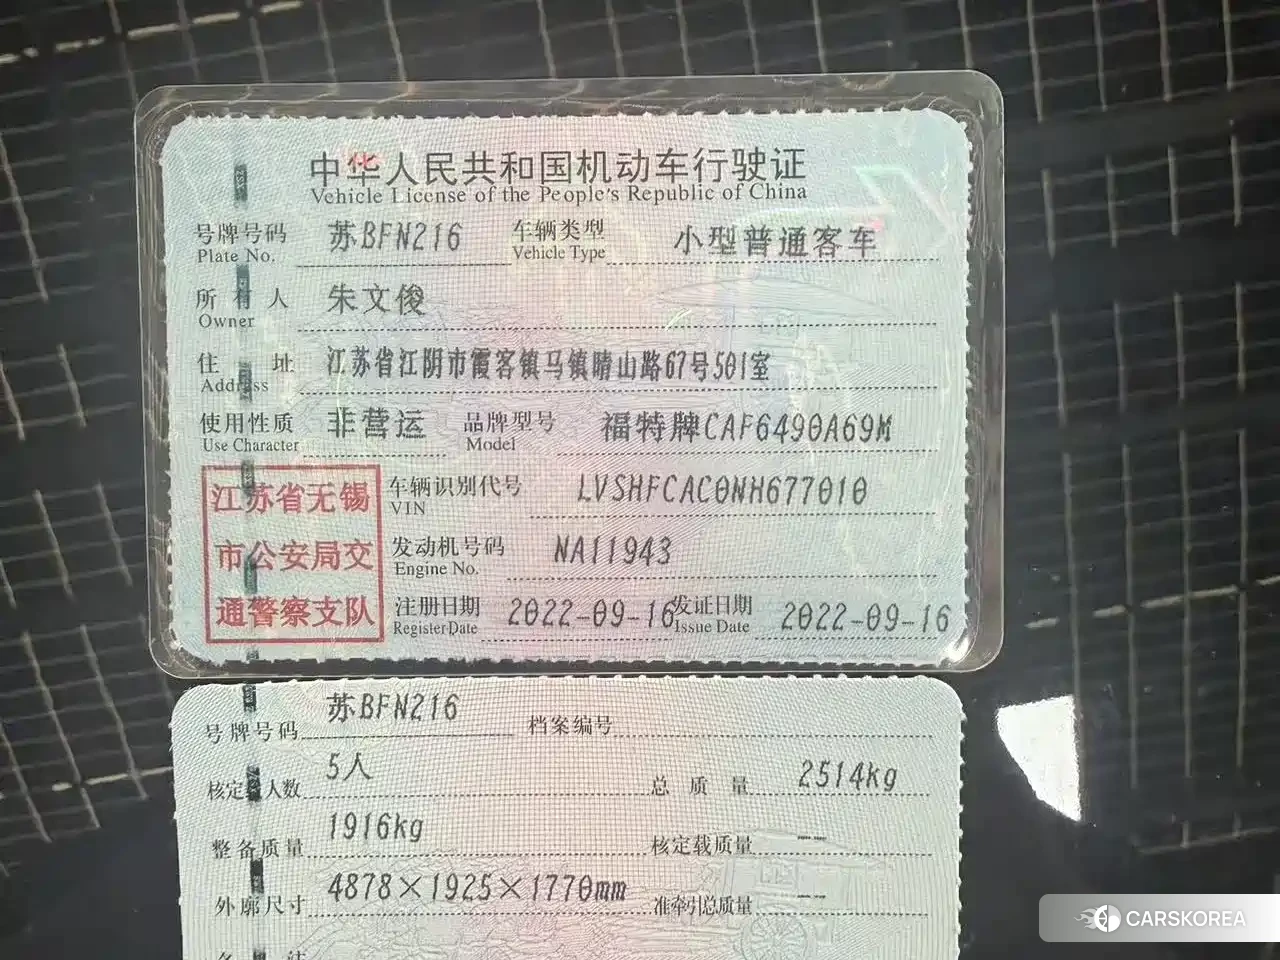 中华人民共和国机动车行驶证
Vehicle License of the People's Republic of China
号牌号码 苏BFN216 车辆类型 小型普通客车
Plate No. Vehicle Type
所有人 朱文俊
Owner
住址 江苏省江阴市霞客镇马镇晴山路67号501室
Address
使用性质 非营运 品牌型号 福特牌CAF6490A69M
Use Character Model
江苏省无锡
市公安局交
通警察支队
车辆识别代号 LVSHFCAC0NH677010
VIN
发动机号码 NA11943
Engine No.
注册日期 2022-09-16 发证日期 2022-09-16
Register Date Issue Date
号牌号码 苏BFN216 档案编号
核定人数 5人 总质量 2514kg
整备质量 1916kg 核定载质量 --
外廓尺寸 4878×1925×1770mm 准牵引总质量 --
CARSKOREA